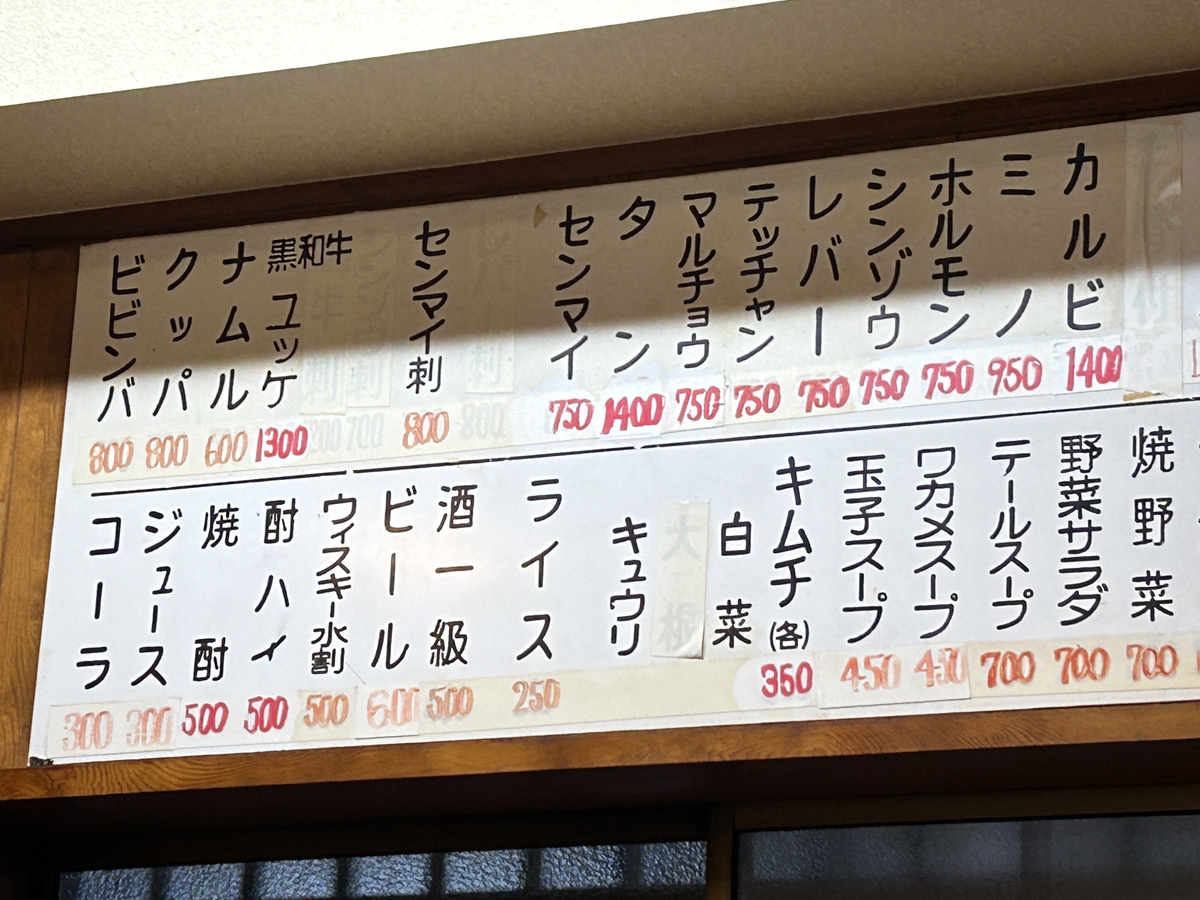 カルビ 1400
ミノ 950
ホルモン 750
シンゾウ 750
レバー 750
テッチャン 750
マルチョウ 750
タン 1400
センマイ 750
センマイ刺 800
黒和牛 ユッケ 1300
ナムル 600
クッパ 800
ビビンバ 800
焼野菜 700
野菜サラダ 700
テールスープ 700
ワカメスープ 450
玉子スープ 450
キムチ(各) 350
白菜
キュウリ
ライス 250
酒一級 500
ビール 600
ウィスキー水割 500
酎ハイ 500
焼酎 500
ジュース 300
コーラ 300